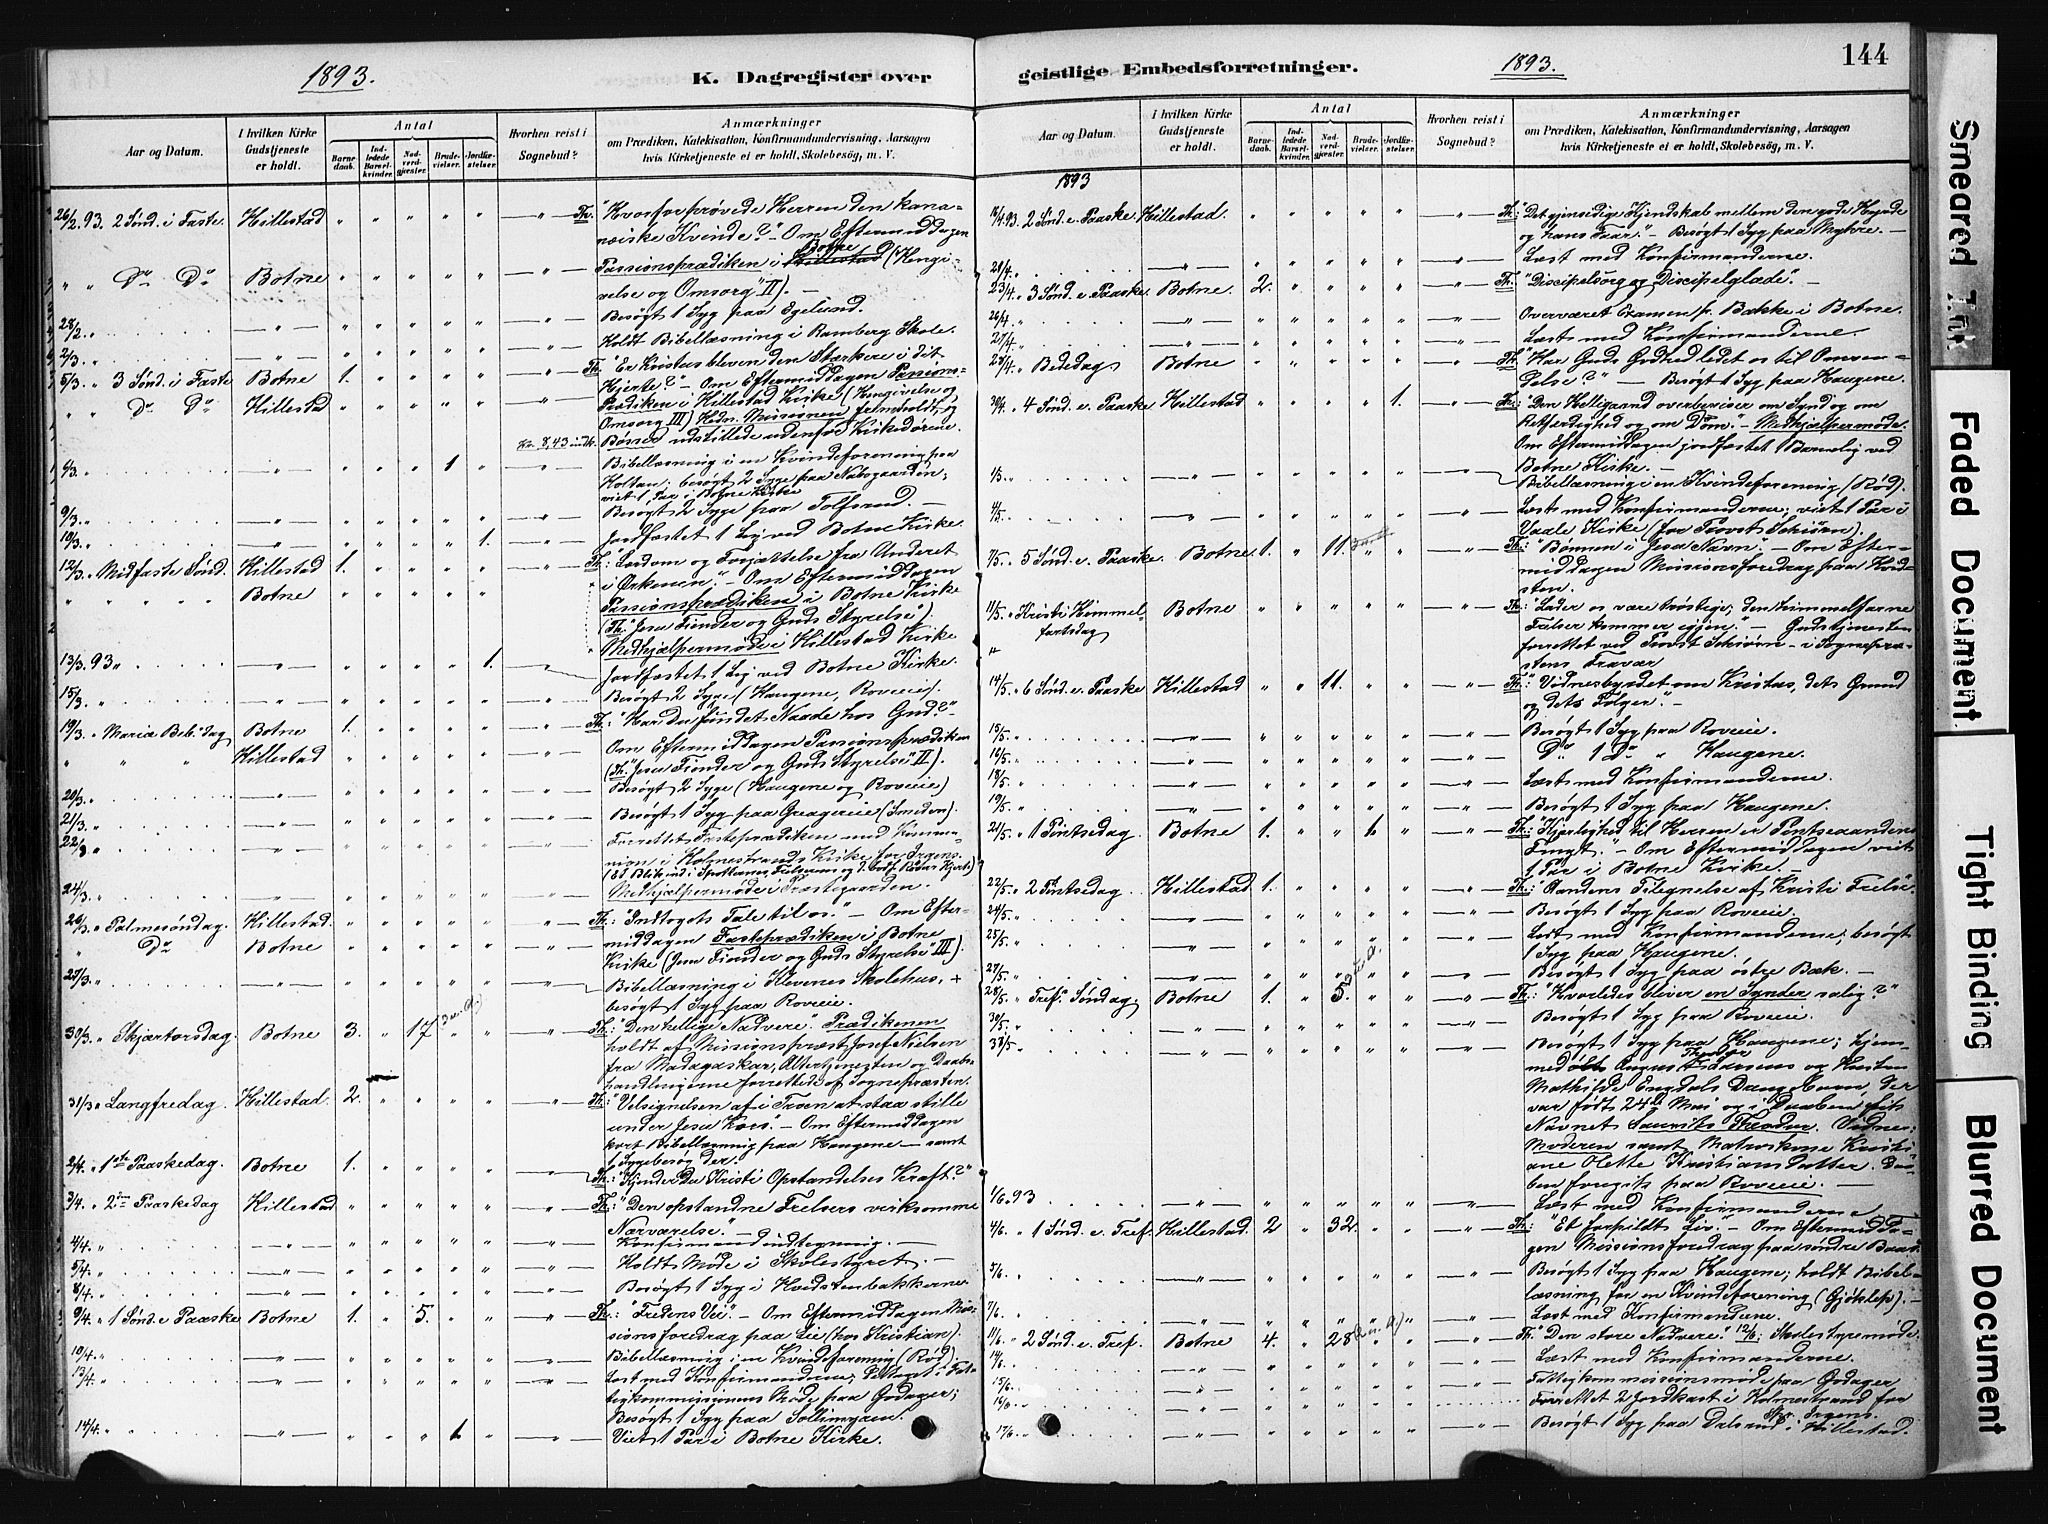 144
1893.
K. Dagregister over
geistlige Embedsforretninger.
1893.
Aar og Datum.
I hvilken Kirke Gudstjeneste er holdt.
Antal
Barnedaab.
Indledede Barselkvinder.
Nadverdgjæster.
Brudevielser.
Jordfæstelser.
Hvorhen reist i Sognebud?
Anmærkninger
om Prædiken, Katekisation, Konfirmandundervisning, Aarsagen
hvis Kirketjeneste ei er holdt, Skolebesög, m. V.
26/2 93. 2 Sønd. i Faste Hillestad " " " " " " Th. "Hvorfor prøvede Herren den kana-
næiske Kvinde?" - Om Eftermiddagen
Passionsprædiken i Botne (Hengi-
" " Do Do Botne " " " " " "
velse og Omsorg" II). -
Besøgt 1 Syg paa Egelund.
28/2 "
Holdt Bibellæsning i Ramberg Skole.
2/3. "
Th. "Er Kristus bleven den Stærkere i dit
5/3 " 3 Sønd. i Faste Botne 1. " " " " "
Hjerte?" - Om Eftermiddagen Passions-
" " Do Do Hillestad
Prædiken i Hillestad Kirke (Hengivelse og
Omsorg III) Hedn. Missionen fremholdt, og
Kr. 8,43 indk. Bøsser udstillede udenfor Kirkedørene.
6/3. " 1
Bibellæsning i en Kvindeforening paa
Holtan; besøgt 2 Syge paa Nabogaarden;
viet 1 Par i Botne Kirke
9/3. " Besøgt 2 Syge paa Tolfsrud. -
10/3. " 1. Jordfæstet 1 Lig ved Botne Kirke.
12/3. " Midfaste Sønd. Hillestad 1. Th: Lærdom og Forjættelse fra Underet
i Ørkenen." - Om Eftermiddagen
" " " " Botne Passionsprædiken i Botne Kirke
(Th. "Jesu Fiender og Guds Styrelse")
Medhjælpermøde i Hillestad Kirke
13/3. 93 " 1. Jordfæstet 1 Lig ved Botne Kirke.
15/3. " Besøgt 2 Syge (Haugene, Roveie).
19/3. " Mariæ Beb. dag Botne 1. Th: "Har du fundet Naade hos Gud?"
" " " Hillestad Om Eftermiddagen Passionsprædiken
(Th. "Jesu Fiender og Guds Styrelse" II).
20/3. " Besøgt 2 Syge (Haugene og Roveie)
21/3. " Besøgt 1 Syg paa Graagereie (Smeden).
22/3 " Forrettet Fasteprædiken med Kommu-
nion i Holmestrands Kirke for Irgens.
24/3. " Medhjælpermøde i Præstegaarden.
26/3. " Palmesøndag. Hillestad Th: "Indtogets Tale til os." - Om Efter-
" Do Botne middagen Fasteprædiken i Botne
Kirke (Jesu Fiender og Guds Styrelse" III).
27/3. " Bibellæsning i Klevenes Skolehus, +
besøgt 1 Syg paa Roveie.
30/3. " Skjærtorsdag. Botne 3. " 17 Th: "Den hellige Nadvere". Prædikenen
holdt af Missionspræst Josef Nielsen
fra Madagaskar, Altertjenesten og Daabs-
handlingerne forrettede af Sognepræsten.
31/3 " Langfredag. Hillestad. 2. Th: "Velsignelsen af i Troen at staa stille
under Jesu Kors. - Om Eftermiddagen
kort Bibellæsning paa Haugene - samt
1 Sygebesøg der.
2/4. " 1ste Paaskedag. Botne 1. Th: "Kjender Du Kristi Opstandelses Kraft?"
3/4. " 2den Paaskedag Hillestad Th: "Den opstandne Frelsers virksomme
Nærværelse."
4/4. " Konfirmandindtegning. -
5/4. " Holdt Møde i Skolestyret. -
8/4. " Besøgt 1 Syg i Hvidstenbakkerne.
9/4. " 1 Sønd. e. Paaske Botne 1. " 5. Th: "Fredens Vei". - Om Eftermiddagen Mis-
sionsforedrag paa Lie (hos Kristian).
10/4. " Bibellæsning i en Kvindeforening (Rød).
13/4. " Læst med Konfirmanderne; Deltaget i Fat-
tigkommissionens Møde paa Godager;
Besøgt 1 Syg paa Sollimyren.
14/4. " 1 Viet 1 Par i Botne Kirke.
Aar og Datum.
I hvilken Kirke Gudstjeneste er holdt.
Antal
Barnedaab.
Indledede Barselkvinder.
Nadverdgjæster.
Brudevielser.
Jordfæstelser.
Hvorhen reist i Sognebud?
Anmærkninger
om Prædiken, Katekisation, Konfirmandundervisning, Aarsagen
hvis Kirketjeneste ei er holdt, Skolebesög, m. V.
1893
16/4. 93. 2 Sønd. e. Paaske. Hillestad. Th: "Det gjensidige Kjendskab mellem den gode Hyrde
og hans Faar." - Besøgt 1 Syg paa Myhre. -
20/4. " Læst med Konfirmanderne.
23/4. " 3 Sønd. e. Paaske. Botne. 2. Th: "Discipelsorg og Discipelglæde". -
26/4. " Overværet Examen p. Bakke i Botne.
27/4. " Læst med Konfirmanderne.
28/4. " Bededag Botne Th: "Har Guds Godhed ledet os til Omven-
delse?" - Besøgt 1 Syg paa Haugene.
30/4. " 4 Sønd. e. Paaske Hillestad 1. Th: "Den Helligaand overbeviser om Synd og om
Retfærdighed og om Dom." - Medhjælpermøde.
Om Eftermiddagen jordfæstet 1 Barnelig ved
Botne Kirke. -
Bibellæsning i en Kvindeforening (Rød).
4/5. " Læst med Konfirmanderne; viet 1 Par i
Vaale Kirke (for Provst Schiørn).
7/5. " 5 Sønd. e. Paaske. Botne. 1. " 11. Th: "Bønnen i Jesu Navn". - Om Efter-
middagen Missionsforedrag paa Hvid-
sten.
11/5. " Kristi Himmel- Botne Th: "Lader os være trøstige; den himmelfarne
fartsdag Frelser kommer igjen." - Gudstjenesten
forrettet ved Provst Schiørn - i Sognepræ-
stens Fravær
14/5. " 6 Sønd. e. Paaske Hillestad " " 11. Th: "Vidnesbyrdet om Kristus, dets Grund
og dets Følger". -
15/5. " Besøgt 1 Syg paa Roveie.
16/5. " Do 1 Do " Haugene.
18/5. " Læst med Konfirmanderne.
19/5. " Besøgt 1 Syg paa Haugene.
21/5. " 1 Pintsedag. Botne. 1. " " 1 Th: "Kjærlighed til Herren er Pintseaandens
Frugt." - Om Eftermiddagen viet
1 Par i Botne Kirke. -
22/5. " 2 Pintsedag. Hillestad 1. Th: "Aandens Tilegnelse af Kristi Frelse.
24/5. " Besøgt 1 Syg paa Roveie.
25/5. " Læst med Konfirmanderne; besøgt
1 Syg paa Haugene.
27/5. " Besøgt 1 Syg paa østre Bæk. -
28/5. " Tref. Søndag. Botne 1. " 5. Th: "Hvorledes bliver en Synder salig?"
30/5. " Besøgt 1 Syg paa Roveie.
31/5. " Besøgt 1 Syg paa Haugene; hjem-
Mathilde Engdals Dreng Barn, der
var født 24de Mai og i Daaben fik
Navnet Laurits Theodor. Vidner:
Moderen samt Matroskone Kristi-
ane Olette Kristiansdatter. Daa-
ben foregik paa Roveie.
1/6. 93 Læst med Konfirmanderne
4/6. " 1 Sønd. e. Tref. Hillestad. 2 " 32. Th: "Et forspildt Liv". - Om Eftermidda-
gen Missionsforedrag paa søndre
5/6. " Besøgt 1 Syg paa Haugene; holdt Bibel-
læsning for en Kvindeforening (Gjøklep). -
7/6. " Læst med Konfirmanderne.
11/6. " 2 Sønd. e. Tref. Botne 4. " 28 Th: "Den store Nadvere". 12/6: Skolestyremøde.
14/6. " Læst med Konfirmanderne.
15/6. " Fattigkommissionsmøde paa Godager
16/6 " Forrettet 2 Jordkast i Holmestrand for
Irgens.
17/6. " Besøgt 1 Syg paa Dalsrud i Hillestad.
Smeared Ink
Faded Document.
Tight Binding
Blurred Document